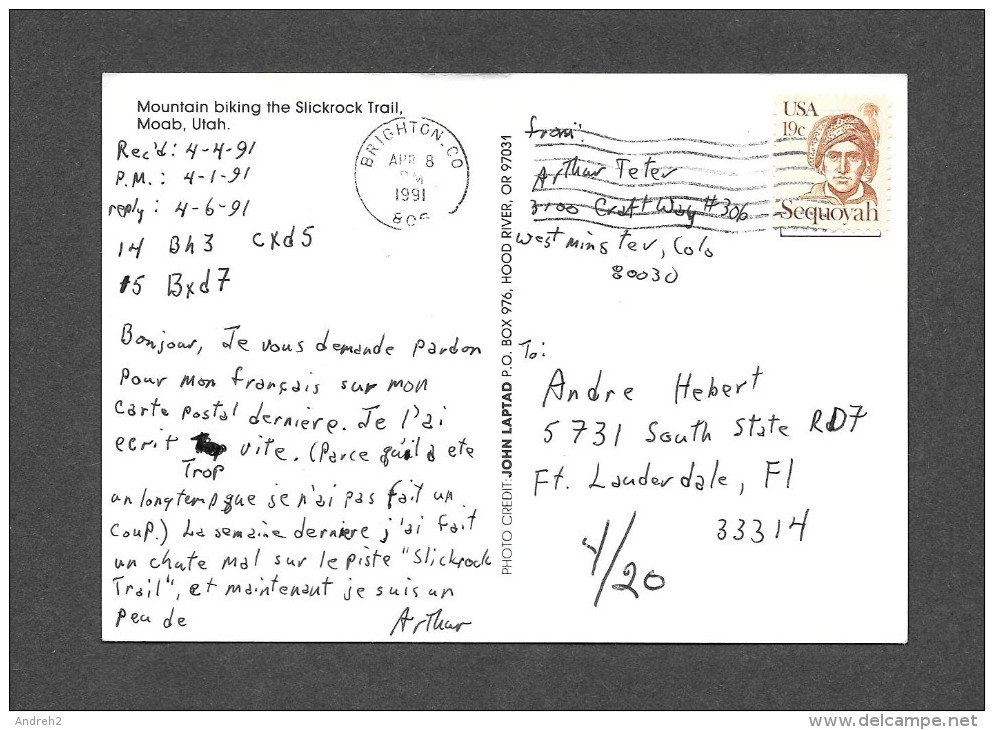 Mountain biking the Slickrock Trail,
Moab, Utah.
Rec'd: 4-4-91
P.M.: 4-1-91
reply: 4-6-91
14 Bh3 CXd5
15 Bxd7
Bonjour, Je vous demande pardon
pour mon français sur mon
carte postal derniere. Je l'ai
ecrit vite. (Parce qu'il a ete
Trop
un longtemp que je n'ai pas fait un
coup.) La semaine derniere j'ai fait
un chute mal sur le piste "Slickrock
Trail", et maintenant je suis un
peu de Arthur
BRIGHTON, CO
APR 8
PM
1991
PHOTO CREDIT: JOHN LAPTAD P.O. BOX 976, HOOD RIVER, OR 97031
from:
Arthur Teter
3100 Craft Way #306
Westminster, Colo
80030
USA
19c
Sequoyah
To:
Andre Hebert
5731 South State RD7
Ft. Lauderdale, Fl
33314
4/20
Andreh2
www.delcampe.net